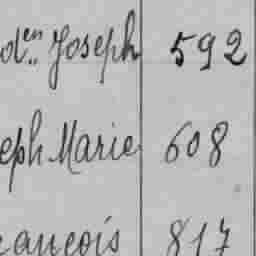 den Joseph 592
eph Marie 608
rancois 817